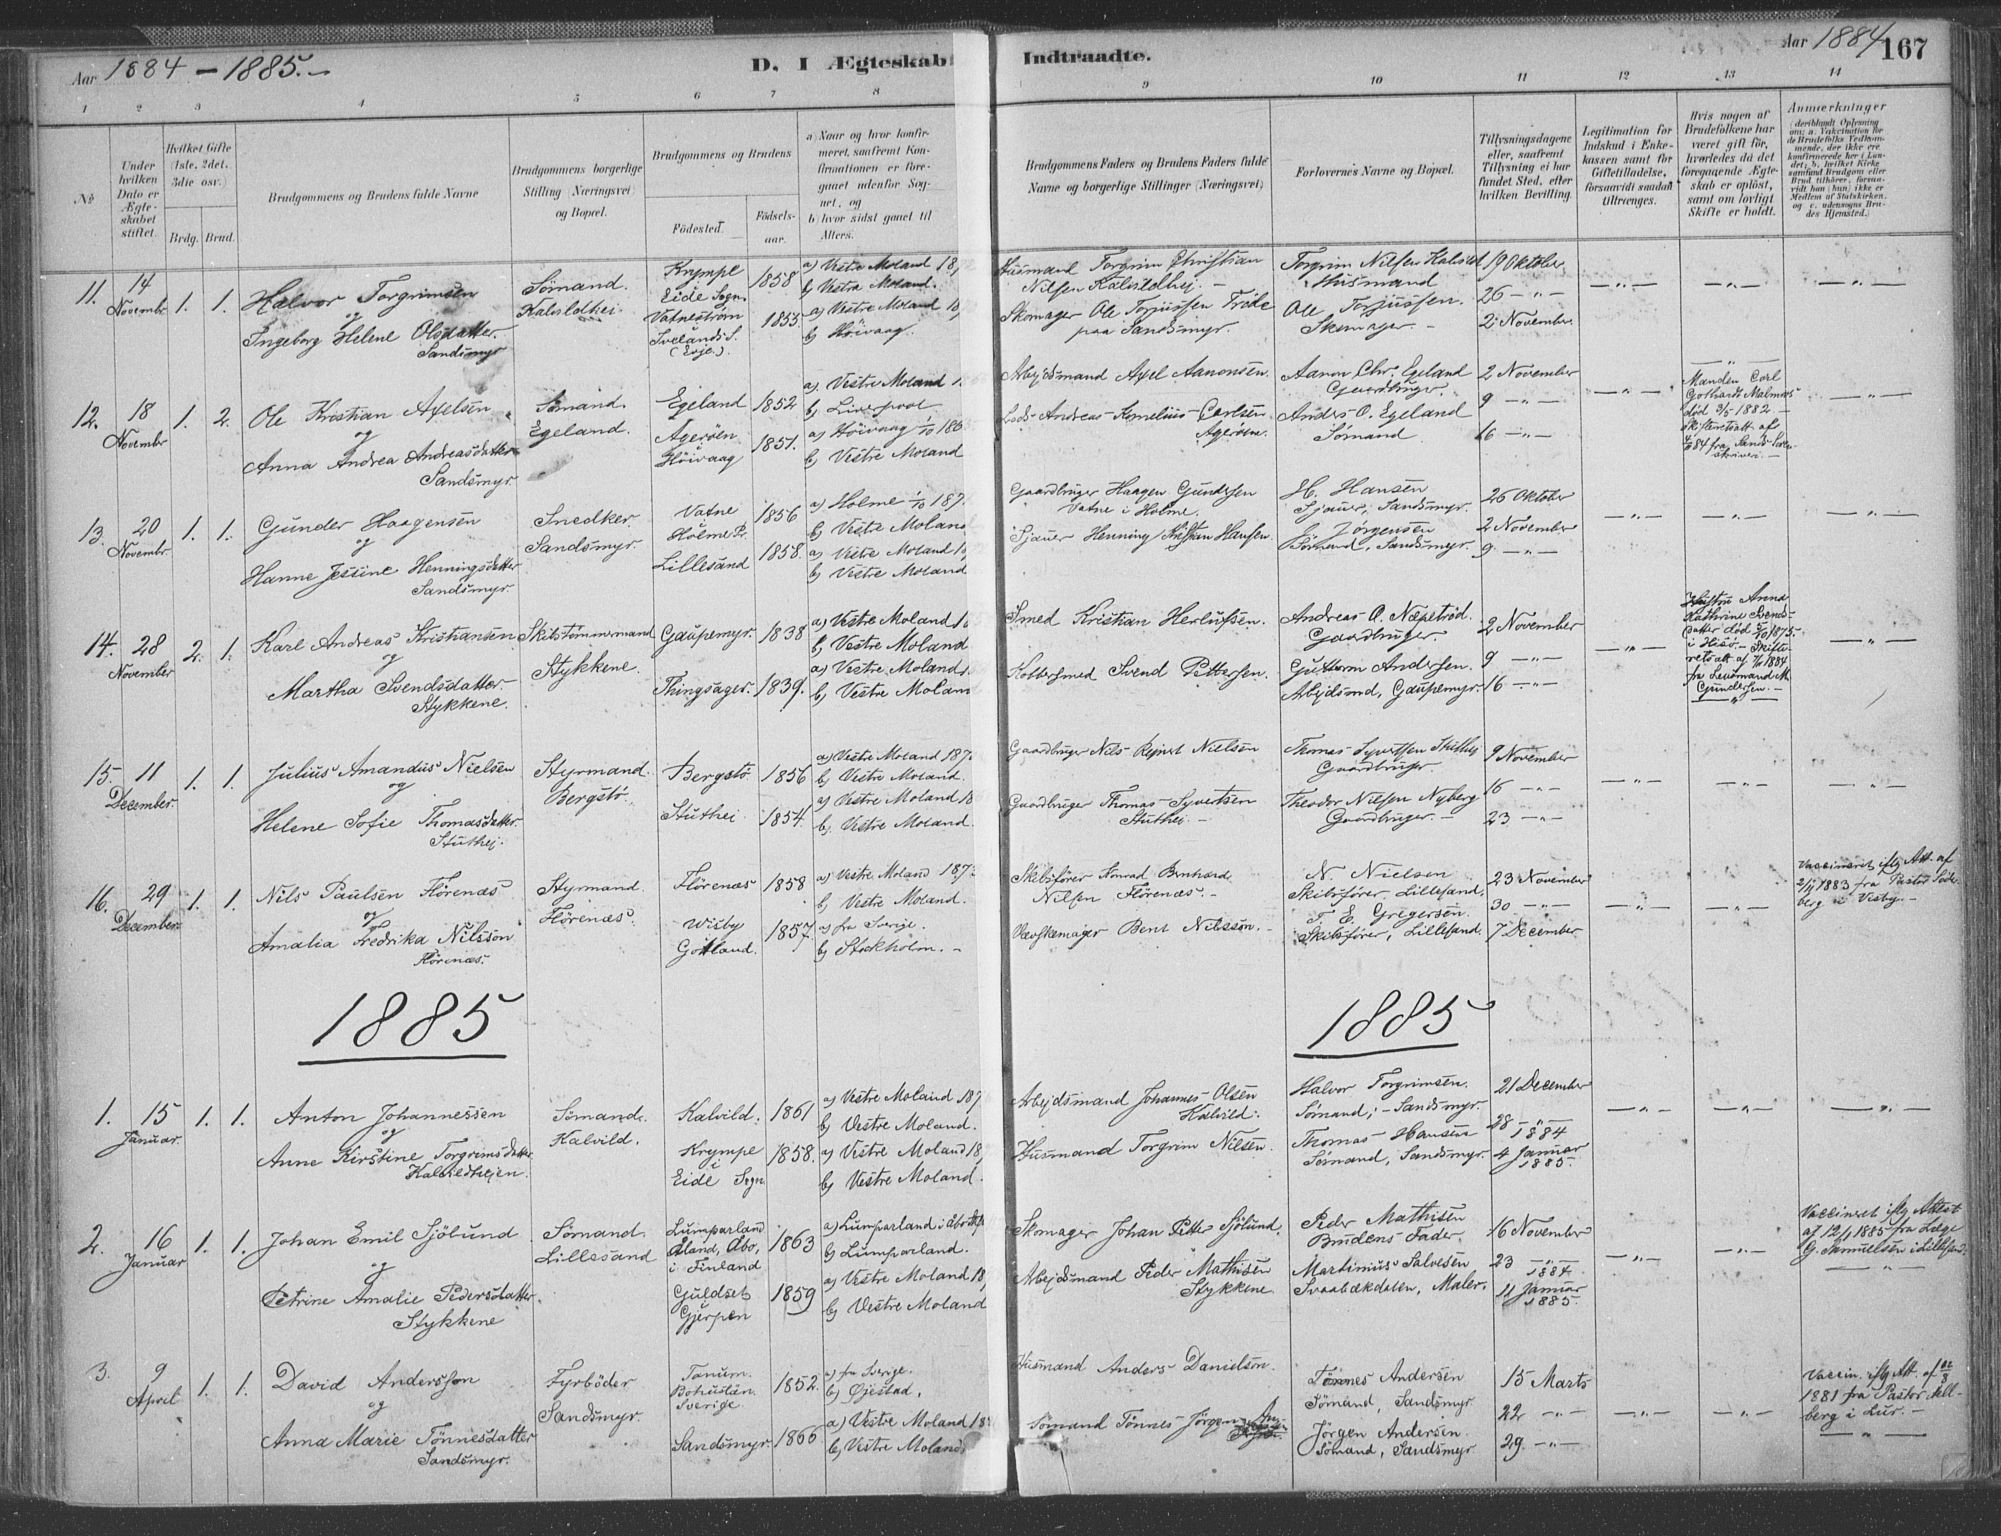 Aar 1884 - 1885.-
D. I Ægteskab
Indtraadte.
Aar 1884
167
1 2 3 4 5 6 7 8 9 10 11 12 13 14
No
Under hvilken Dato er Ægteskabet stiftet.
Hvilket Gifte (1ste, 2det, 3die osv.)
Brdg. Brud.
Brudgommens og Brudens fulde Navne
Brudgommens borgerlige Stilling (Næringsvei) og Bopæl.
Brudgommens og Brudens
Födested.
Födselsaar.
a) Naar og hvor konfirmeret, saafremt Konfirmationen er foregaaet udenfor Sognet, og
b) hvor sidst gaaet til Alters.
Brudgommens Faders og Brudens Faders fulde Navne og borgerlige Stillinger (Næringsvei)
Forlovernes Navne og Bopæl.
Tillysningsdagene eller, saafremt Tillysning ei har fundet Sted, efter hvilken Bevilling.
Legitimation for Indskud i Enkekassen samt for Giftetilladelse, forsaavidt saadan tiltrænges.
Hvis nogen af Brudefolkene har været gift før, hvorledes da det foregaaende Ægteskab er oplöst, samt om lovligt Skifte er holdt.
Anmærkninger
(deriblandt Oplysning om: a. Vakcination for de Brudefolks Vedkommende, der ikke ere konfirmerede her i Landet; b. hvilket Kirkesamfund Brudgom eller Brud tilhører, forsaavidt han (hun) ikke er Medlem af Statskirken, og c. udensogns Brudes Hjemsted.)
11. 14 Novembr 1. 1. Halvor Torgrimsen
og
Ingeborg Helene Olsdatter.
Sandsmyr
Sömand.
Kalvildhei
Krympe
Eide Sogn
1858
Vatneström
Ivelands S.
(Evje).
1853.
a) Vestre Moland 18
b) Vestre Moland.
a) Vestre Moland
b) Höivaag.
Husmand Torgrim Christian
Nilsen Kalvildhej. -
Skomager Ole Torjussen Tride
paa Sandsmyr.
Torgrim Nilsen Kalvild
Husmand
Ole Torjussen.
Skomager -
19 Oktober
26 - " -
2. November.
- " - - " - - " -
12. 18 November 1. 2. Ole Kristian Axelsen
og
Anna Andrea Andreasdatter
Sandsmyr.
Sömand.
Egeland.
Egeland 1852
Ageröen
i
Höivaag
1851.
a) Vestre Moland
b) Liverpool
a) Höivaag 1/10 186
b) Vestre Moland
Arbejdsmand Axel Aanonsen.
Lods Andreas Kornelius Carlsen
Ageröen.
Aanon Chr. Egeland
Gaardbruger.
Anders O. Egeland
Sömand.
2 November
9 - " -
16 - " -
- " -
- " -
Manden Carl
Gothard Malmros
död 3/5 1882 -
Skifteretsatt. af
84 fra Sands Sorenskriveri. -
- " -
13. 20 Novembr. 1. 1. Gunder Haagensen
og
Hanne Jessine Henningsdatter
Sandsmyr.
Snedker.
Sandsmyr.
Vatne
Holme Pr.
1856
Lillesand 1858.
a) Holme 1/10 187
b) Vestre Moland
a) Vestre Moland 18
b) Vestre Moland
Gaardbruger Haagen Gundersen
Vatne i Holme.
Sjauer Henning Kristian Hansen.
H. Hansen
Sjauer, Sandsmyr.
G. Jörgensen
Sömand, Sandsmyr.
26 Oktober
2 November
9 - " -
- " - - " - - " -
14. 28 November 2. 1. Karl Andreas Kristiansen
og
Martha Svendsdatter.
Stykkene.
Skibstömmermand
Stykkene.
Gaupemyr. 1838
Thingsager. 1839.
a) Vestre Moland 18
b) Vestre Moland
a) Vestre Moland
b) Vestre Moland
Smed Kristian Herlufsen.
Kobbersmed Svend Pettersen.
Andreas O. Næpetröd.
Gaardbruger
Guttorm Andersen.
Arbejdsmd, Gaupemyr.
2 November
9 - " -
16 - " -
- " -
Hustru Anna
Kathrine Svendsdatter död /10 1875.
i Hisö. - Skifteretsatt. af 7/11 1884
fra Lensmand M.
Gundersen. -
- " -
- " -
15. 11 December. 1. 1. Julius Amandus Nielsen
og
Helene Sofie Thomasdatter.
Stuthej.
Styrmand.
Bergstö.
Bergstö 1856
Stuthei 1854.
a) Vestre Moland 187
b) Vestre Moland.
a) Vestre Moland 18
b) Vestre Moland.
Gaardbruger Nils Rejnert Nielsen
Gaardbruger Thomas Syvertsen
Stuthei -
Thomas Syvertsen Stuthej
Gaardbruger
Theodor Nilsen Nyberg
Gaardbruger. -
9 November
16 - " -
23 - " -
- " - - " - - " -
16. 29 December. 1. 1. Nils Paulsen Flörenæs
og
Amalia Fredrika Nilsson
Flörenæs.
Styrmand.
Flörenæs.
Flörenæs 1858
Wisby
Gotland.
1857.
a) Vestre Moland 187
b) Vestre Moland.
a) fra Sverige.
b) Stockholm. -
Skibsförer Konrad Bernhard
Nilsen Flörenæs. -
Bent Nilsson. -
N. Nielsen
Skibsförer, Lillesand.
T. E. Gregersen
Skibsförer, Lillesand.
23 November
30 - " -
7 December
- " - - " -
Vaccineret iflg Att. af
2/11 1883 fra Pastor Söderberg i Visby. -
1885
1885
1. 15 Januar. 1. 1. Anton Johannessen
og
Anne Kirstine Torgrimsdatter
Kalvildhejen.
Sömand.
Kalvild.
Kalvild. 1861
Krympe
i
Eide Sogn
1858.
a) Vestre Moland 187
b) Vestre Moland.
a) Vestre Moland 18
b) Vestre Moland.
Arbejdsmand Johannes Olsen
Kalvild.
Husmand Torgrim Nilsen.
Halvor Torgrimsen.
Sömand, - Sandsmyr.
Thomas Hansen
Sömand, Sandsmyr.
21 December
28 - " -
1884
4 Januar
1885.
- " - - " - - " -
2. 16 Januar 1. 1. Johan Emil Sjölund
og
Petrine Amalie Pedersdatter.
Stykkene
Sömand
Lillesand
Lumparland
Åland, Åbo,
i Finland
1863
Guldset
Gjerpen
1859
a) Lumparland i Åbo
b) Lumparland.
a) Vestre Moland 18
b) Vestre Moland
Skomager Johan Petter Sjölund.
Arbejdsmand Peder Mathisen
Stykkene.
Peder Mathisen
Brudens Fader.
Martinius Salvesen
Svaabækdalen, Maler.
16 November
23 - " -
1884.
11 Januar
1885.
- " - - " -
Vaccineret iflg Attest
af 12/1 1885 fra Læge
G. Samuelsen i Lillesand.
- " -
3. 9 April 1. 1. David Andersson
og
Anna Marie Tönnesdatter
Sandsmyr.
Fyrböder
Sandsmyr.
Tanum.
Bohuslän.
Sverige
1852.
Sandsmyr. 1866
a) fra Sverige.
b) Öjestad.
a) Vestre Moland 18
b) Vestre Moland
Husmand Anders Danielson.
Sömand Tönnes Jörgen
Tönnes Andersen
Sömand, Sandsmyr
Jörgen Andersen.
Sömand, Sandsmyr.
15 Marts
22 - " -
29. - " -
- " - - " -
Vaccin. iflg Att. af
1881 fra Pastor
berg i Lur. -
- " -